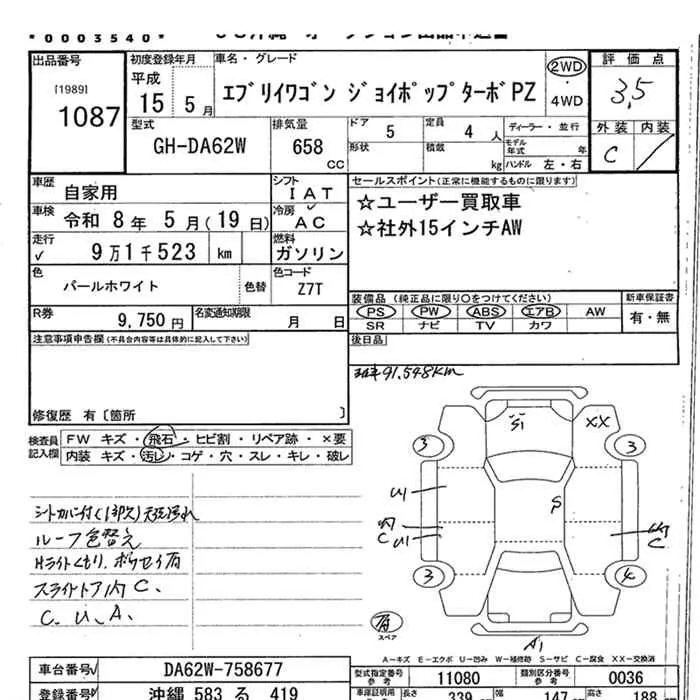 *0003540*
出品番号 初度登録年月 車名・グレード 評価点
[1989] 1087
平成 15年 5月
エブリイワゴン ジョイポップターボPZ
2WD・4WD
3,5
型式 GH-DA62W
排気量 658 cc
ドア 5 定員 4人 ディーラー・並行
形状 積載 kg モデル年式 年 ハンドル 左・右
外装 内装
C /
車歴 自家用
シフト IAT
車検 令和 8年 5月(19日)
冷房 AC
走行 ✓ 9万1千523 km
燃料 ガソリン
色 パールホワイト 色替
色コード Z7T
R券 9,750円
名変通知期限 月 日
セールスポイント(正常に機能するものに限ります)
☆ユーザー買取車
☆社外15インチAW
装備品(純正品に限り○をつけてください) 新車保証書
PS PW ABS エアB AW 有・無
SR ナビ TV カワ
後日品
注意事項申告欄(不具合内容等は具体的に記入して下さい)
修復歴 有〔箇所 〕
検査員記入欄
FW キズ・飛石・ヒビ割・リペア跡・×要
内装 キズ・汚レ・コゲ・穴・スレ・キレ・破レ
91,548km
ルーフ色替え
Hライトくもり、
スライドドア内C、
C、U、A、
S1 XX
3 3
U1 S
C U1 C
3 4
有
スペア
A1
A-キズ E-エクボ U-凹み W-補修跡 S-サビ C-腐食 XX-交換済
車台番号 DA62W-758677
型式指定番号 参考 11080
類別区分番号 参考 0036
登録番号 沖縄 583 る 419
車庫証明用 長さ 339 幅 147 高さ 188